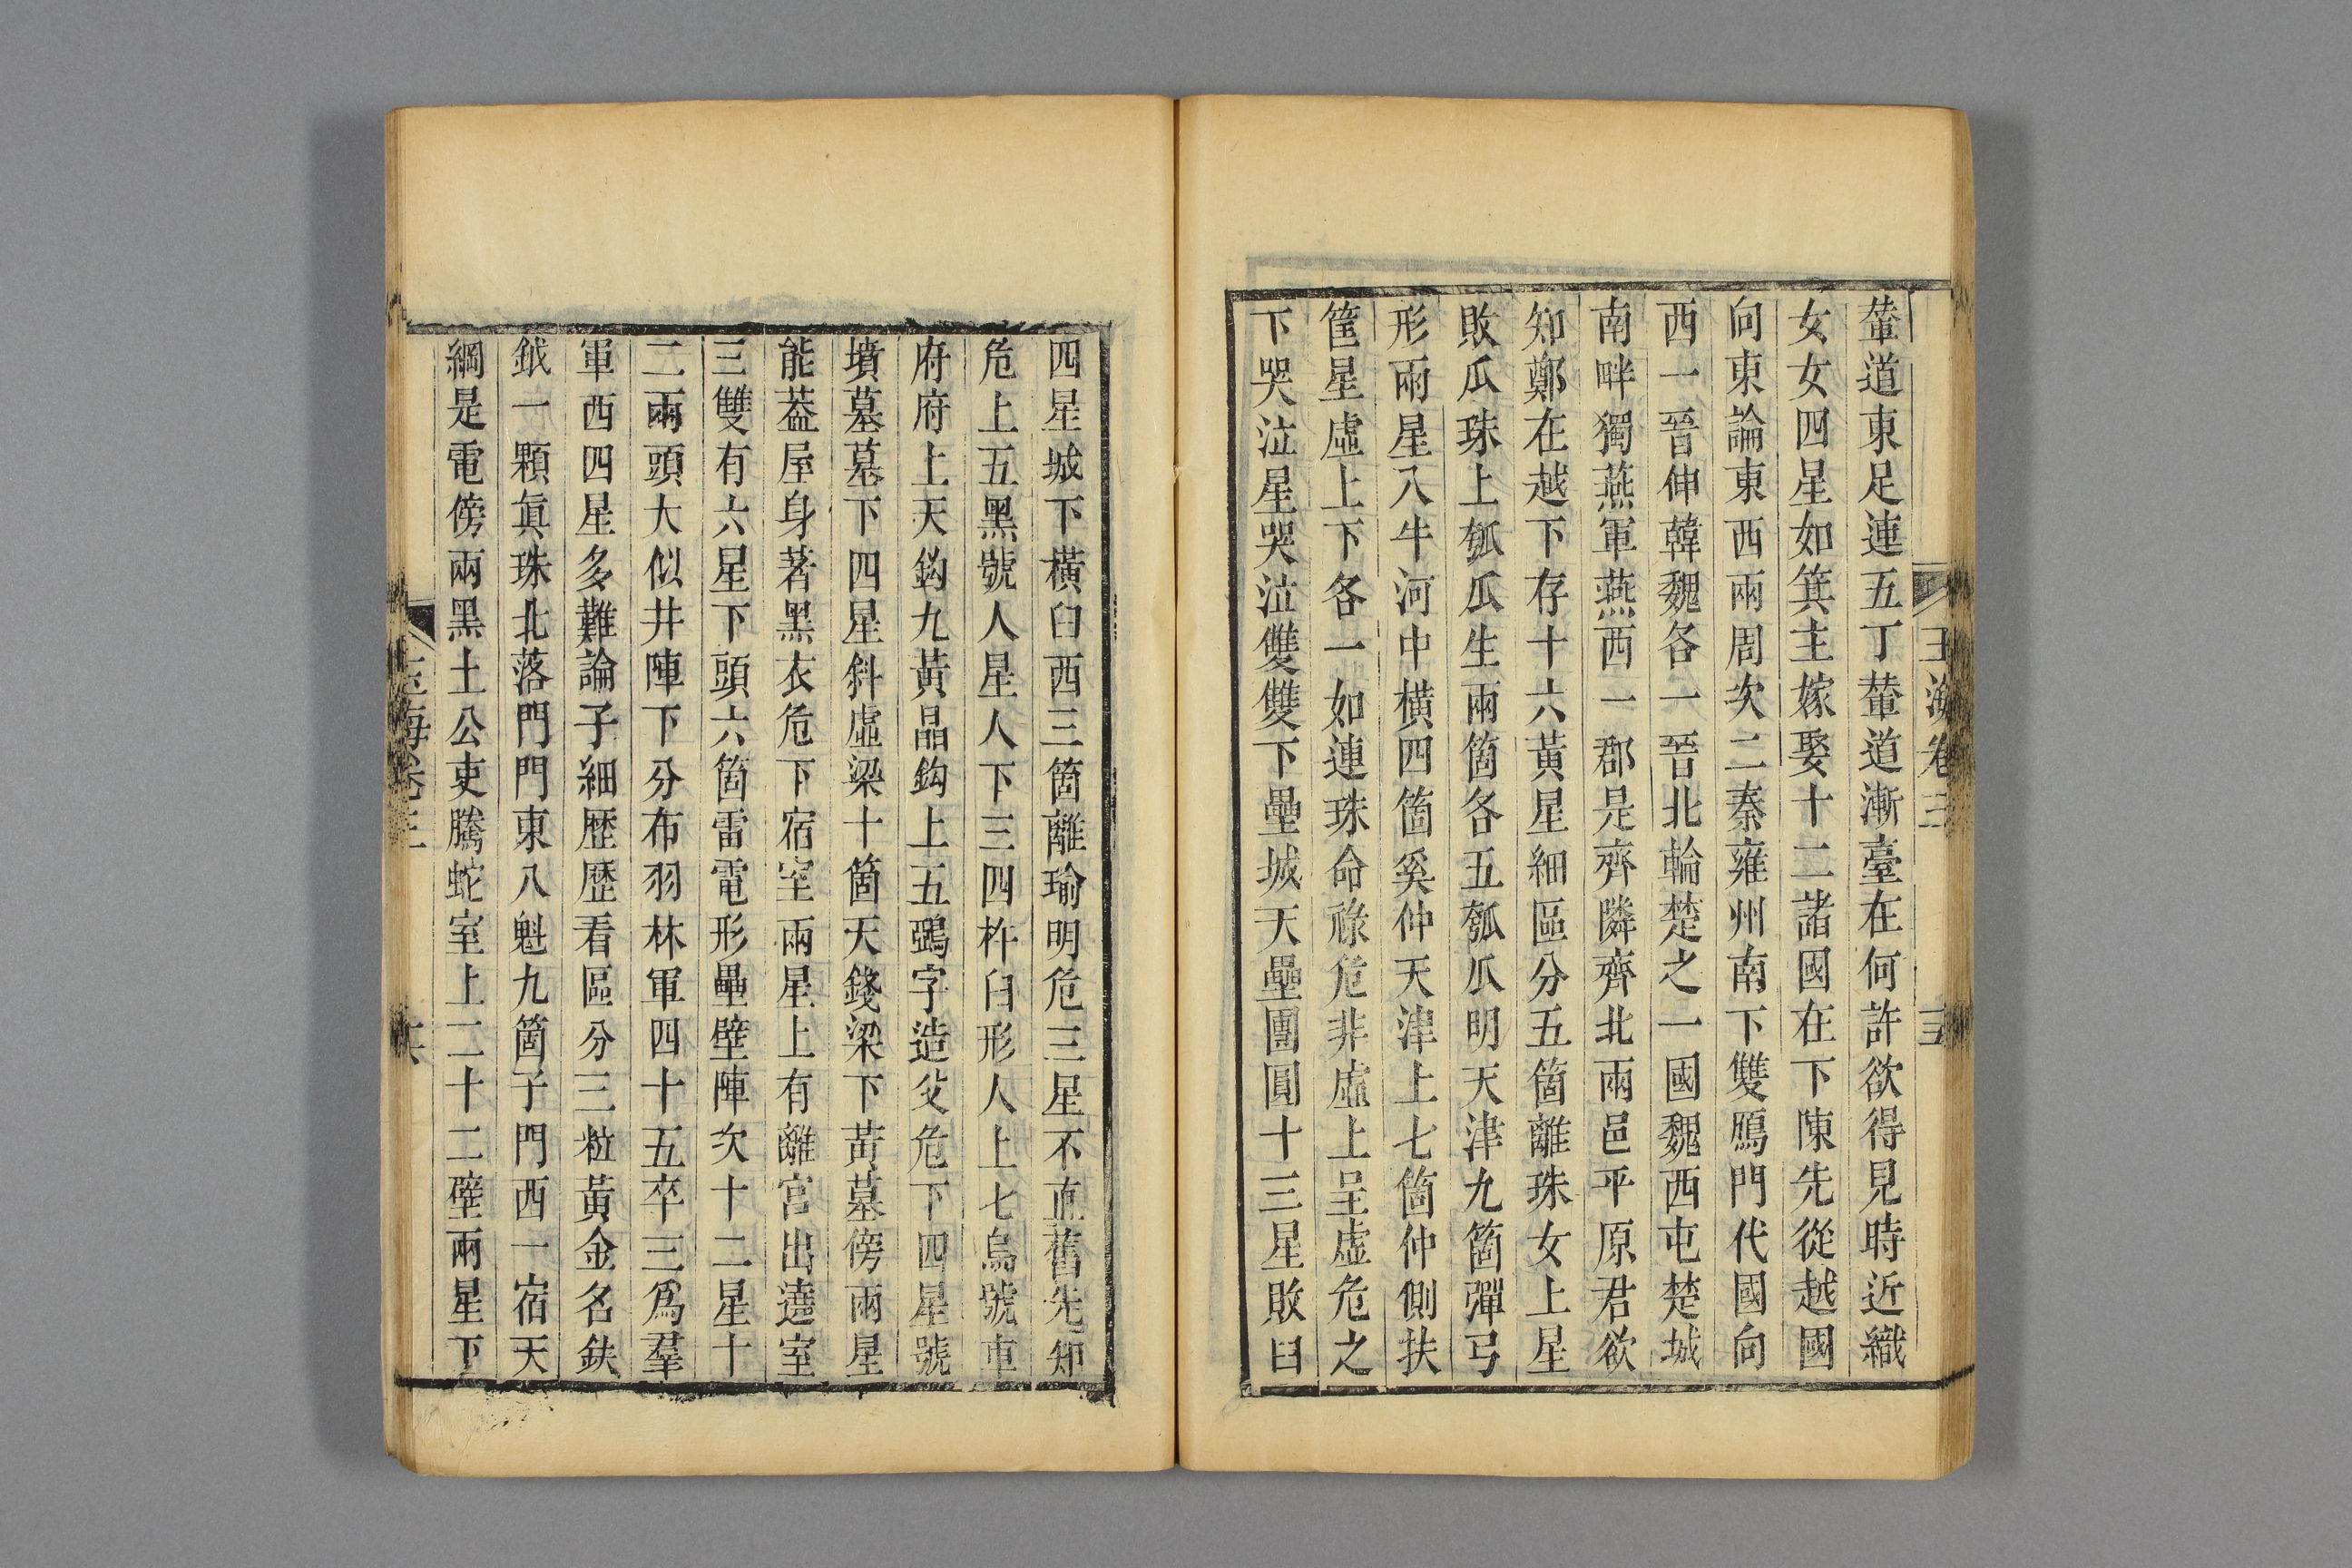 玉海卷三
輦道東足連五丁輦道漸臺在何許欲得見時近織
女女四星如箕主嫁娶十二諸國在下陳先從越國
向東論東西兩周次二秦雍州南下雙鴈門代國向
西一晉伸韓魏各一晉北輪楚之一國魏西屯楚城
南畔獨燕軍燕西一郡是齊隣齊北兩邑平原君欲
知鄭在越下存十六黃星細區分五箇離珠女上星
敗瓜珠上瓠瓜生兩箇各五瓠瓜明天津九箇彈弓
形兩星入牛河中橫四箇奚仲天津上七箇仲側扶
筐星虛上下各一如連珠命祿危非虛上呈虛危之
下哭泣星哭泣雙雙下壘城天壘團圓十三星敗臼
四星城下橫臼西三箇離瑜明危三星不直舊先知
危上五黑號人星人下三四杵臼形人上七烏號車
府府上天鈎九黃晶鈎上五鵶字造父危下四星號
墳墓墓下四星斜虛梁十箇天錢梁下黃墓傍兩星
能葢屋身著黑衣危下宿室兩星上有離宮出遶室
三雙有六星下頭六箇雷電形壘壁陣次十二星十
二兩頭大似井陣下分布羽林軍四十五卒三爲羣
軍西四星多難論子細歷歷看區分三粒黃金名鈇
鉞一顆真珠北落門門東八魁九箇子門西一宿天
綱是電傍兩黑土公吏騰蛇室上二十二壁兩星下
玉海卷三